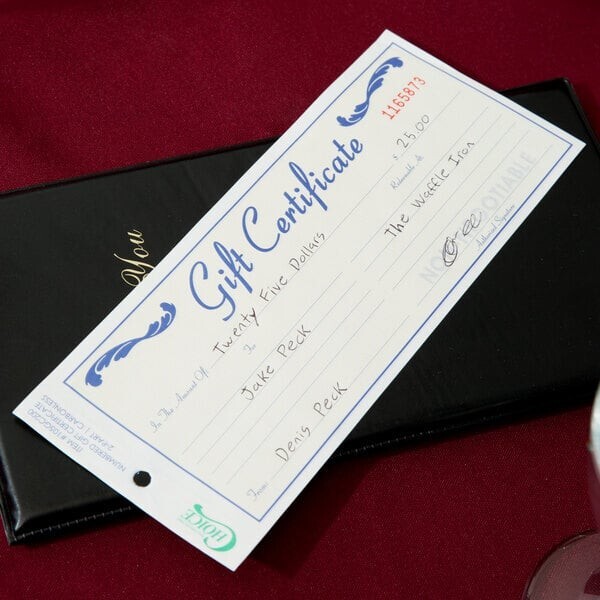 You
1165873
Gift Certificate
$ 25.00
In The Amount Of: Twenty Five Dollars
Redeemable At:
To: Jake Peck
The Waffle Iron
From: Denis Peck
Authorized Signature
CHOICE
ITEM #105GC200
NUMBERED GIFT CERTIFICATE
2-PART | CARBONLESS